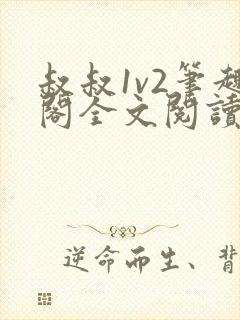 叔叔1v2筆趣
閣全文閱讀
逆命而生、背